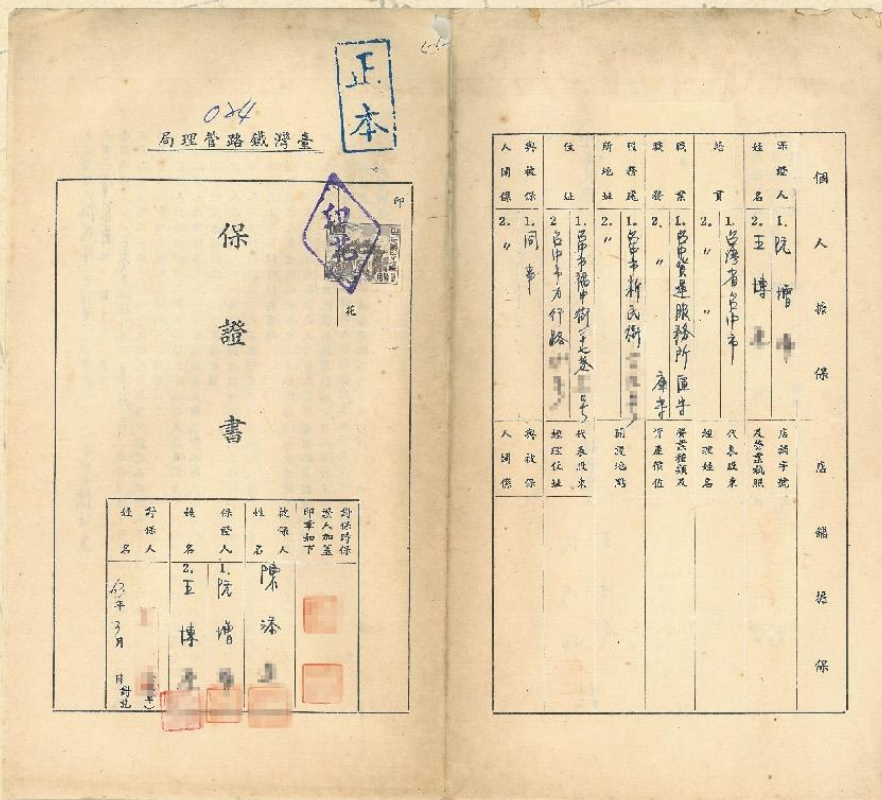 正本
024
臺灣鐵路管理局
印
花
印花
保證書
對保時保
證人加蓋
印章如下
被保人
姓名
陳添
保證人
姓名
1.阮增
2.王博
對保人
姓名
年
月
日對訖
個人擔保
保證人
姓名
1.阮增
2.王博
籍貫
1.台灣省台中市
2.〃 〃
職業
職務
1.台中貨運服務所
2.〃
服務處
所地址
1.台中市新民街
2.〃
住址
1.台中市
2.台中市力行路
與被保
人關係
1.同事
2.〃
店鋪擔保
店鋪字號
及營業執照
代表股東
經理姓名
營業種類及
資產價值
開設地點
代表股東
經理住址
與被保
人關係